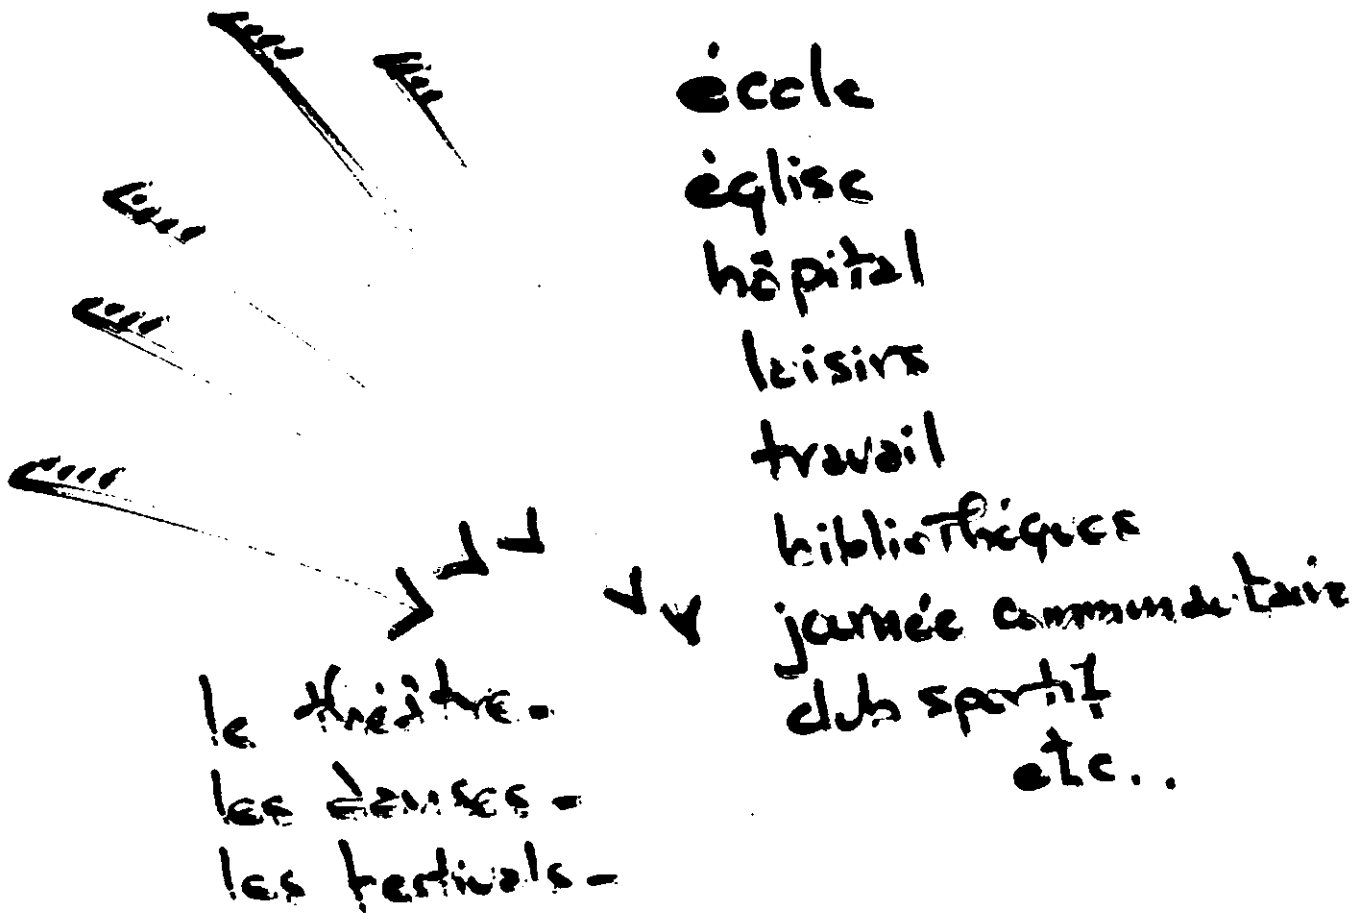 école
église
hôpital
loisirs
travail
bibliothéques
journée communautaire
club sportif
etc..
le théâtre -
les danses -
les festivals -